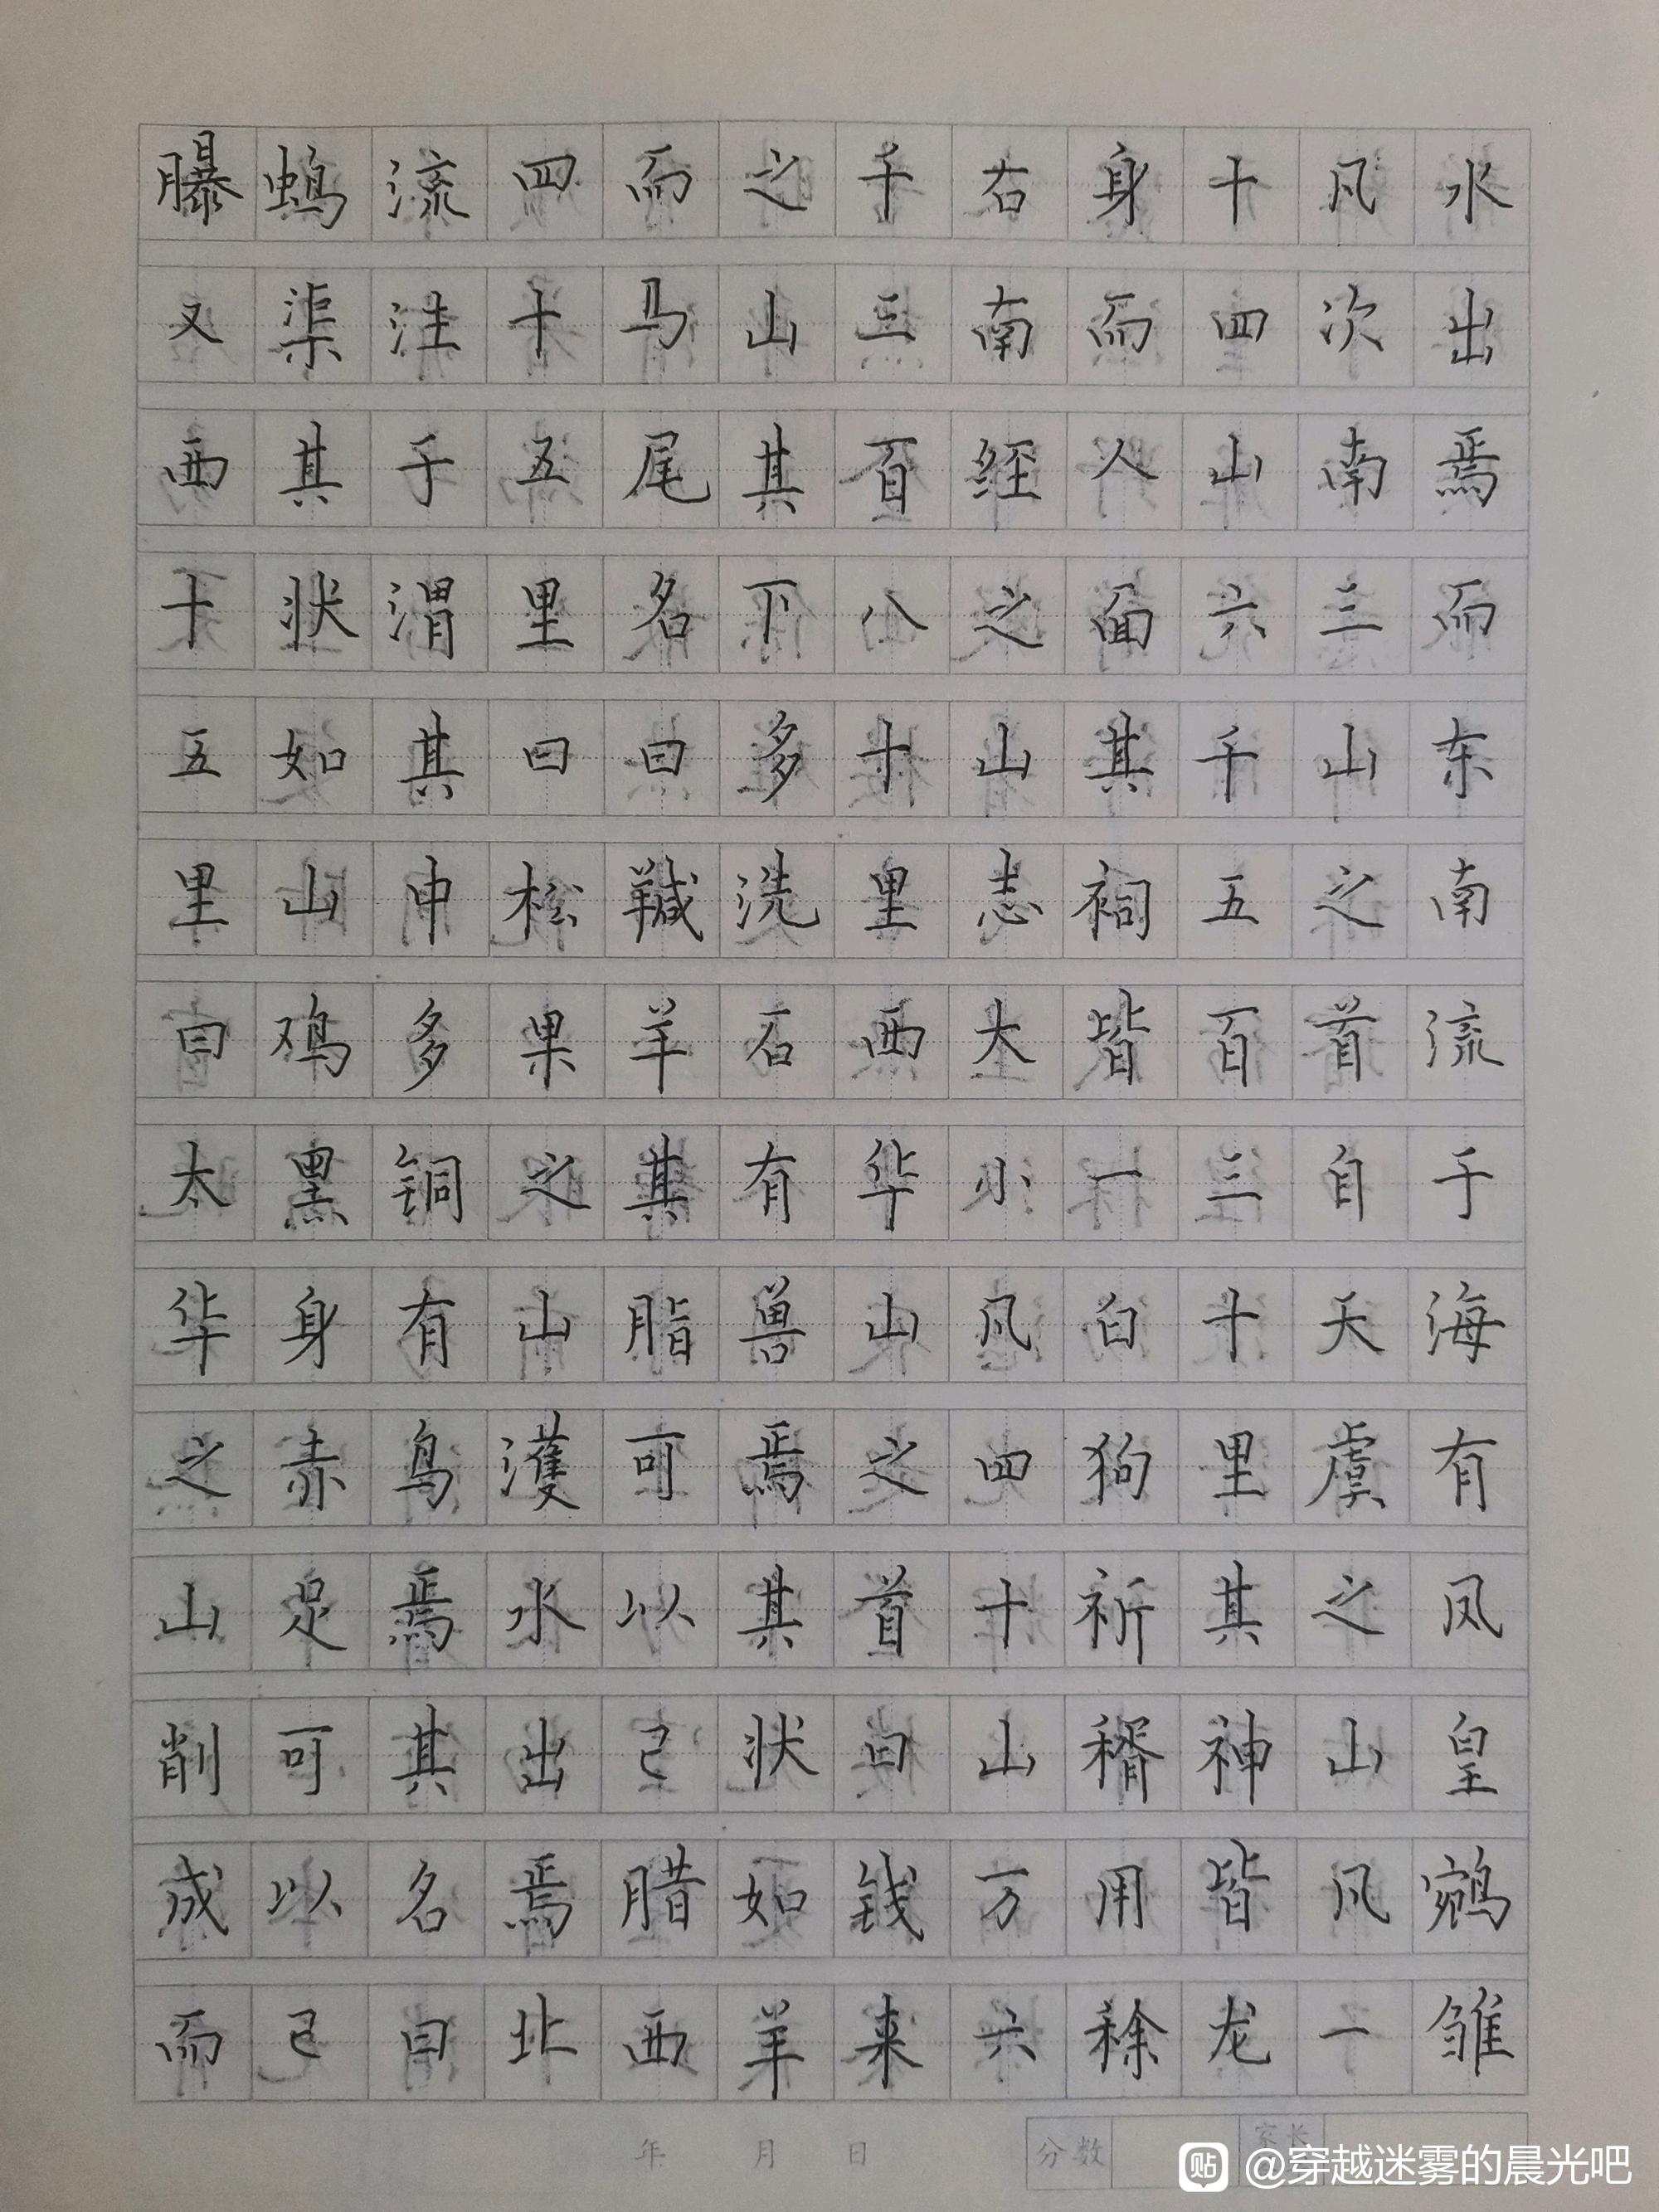 水出焉而东南流于海有凤皇鹓雏
凡次南三山之首自天虞之山凡一
十四山六千五百三十里其神皆龙
身而人面其祠皆一白狗祈稰用稌
右南经之山志大小凡四十山万六
千三百八十里西华山之首曰钱来
之山其下多洗石有兽焉其状如羊
而马尾名曰羬羊其脂可以已腊西
四十五里曰松果之山濩水出焉北
流注于渭其中多铜有鸟焉其名曰
螐渠其状如山鸡黑身赤足可以已
𦢊又西十五里曰太华之山削成而
年 月 日
分数 家长
贴 @穿越迷雾的晨光吧